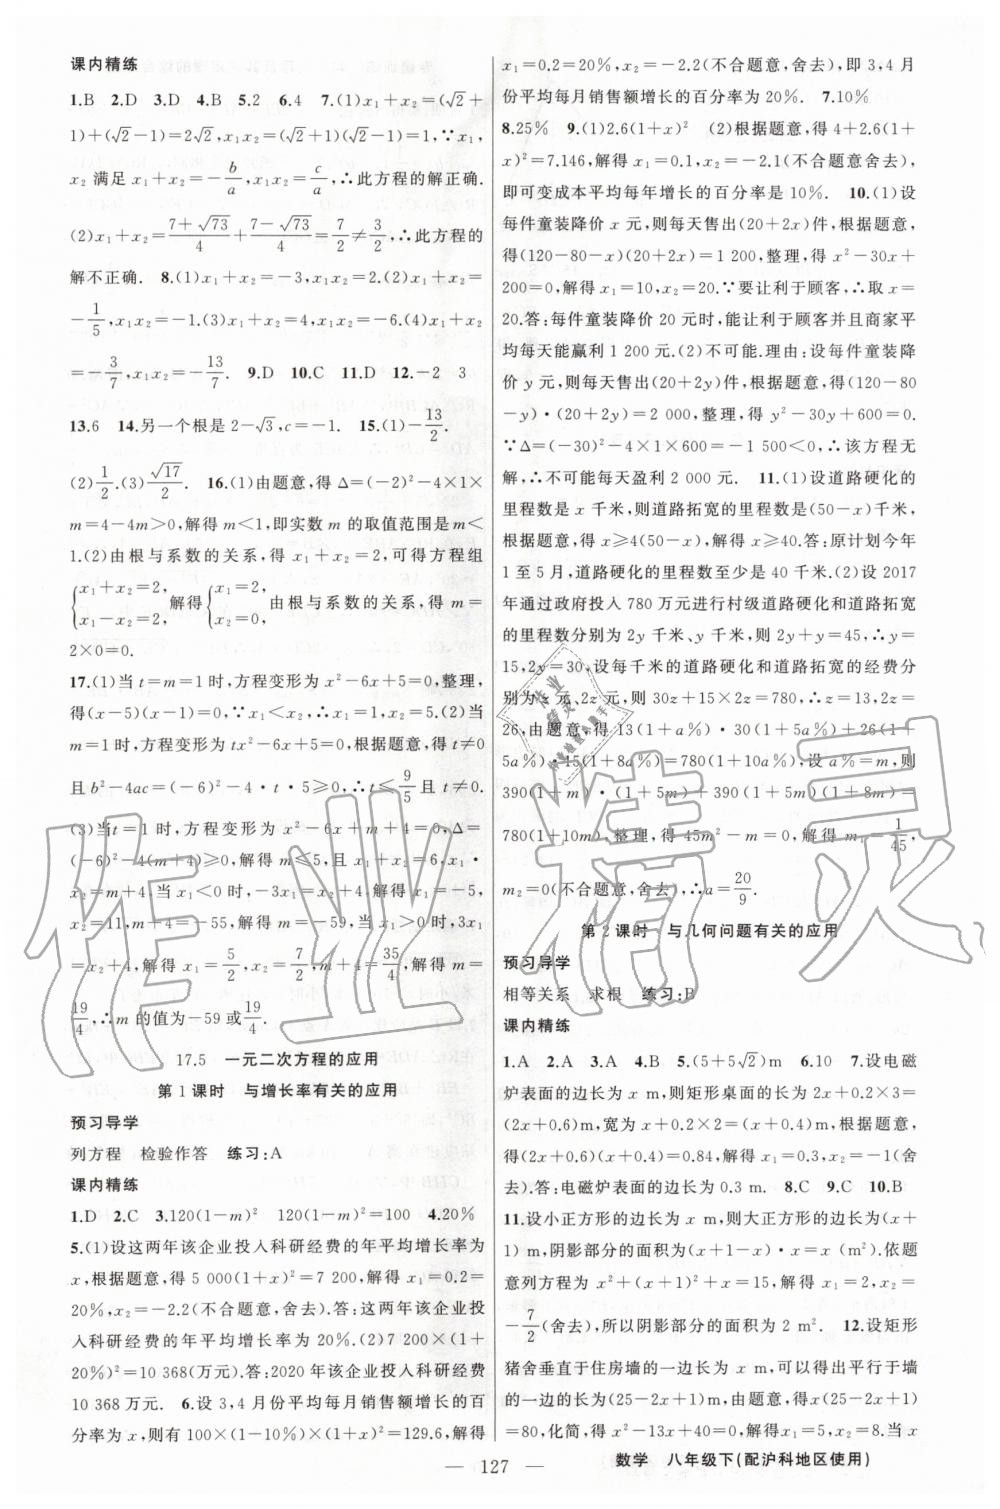 课内精练
1.B 2.D 3.D 4.B 5.2 6.4 7.(1)x₁+x₂=(√2+
1)+(√2-1)=2√2,x₁x₂=(√2+1)(√2-1)=1,∵x₁,
x₂ 满足 x₁+x₂=-b/a,x₁x₂=c/a,∴此方程的解正确.
(2)x₁+x₂=(7+√73)/4+(7-√73)/4=7/2≠3/2,∴此方程的
解不正确. 8.(1)x₁+x₂=-3,x₁x₂=2.(2)x₁+x₂=
-1/5,x₁x₂=-1.(3)x₁+x₂=4,x₁x₂=-6.(4)x₁+x₂
=-3/7,x₁x₂=-13/7. 9.D 10.C 11.D 12.-2 3
13.6 14.另一个根是 2-√3,c=-1. 15.(1)-13/2.
(2)1/2.(3)√17/2. 16.(1)由题意,得 Δ=(-2)²-4×1×
m=4-4m>0,解得 m<1,即实数 m 的取值范围是 m<
1.(2)由根与系数的关系,得 x₁+x₂=2,可得方程组
{x₁+x₂=2, x₁-x₂=2, 解得{x₁=2, x₂=0, 由根与系数的关系,得 m=
2×0=0.
17.(1)当 t=m=1 时,方程变形为 x²-6x+5=0,整理,
得(x-5)(x-1)=0,∵x₁<x₂,∴x₁=1,x₂=5.(2)当
m=1 时,方程变形为 tx²-6x+5=0,根据题意,得 t≠0
且 b²-4ac=(-6)²-4·t·5≥0,∴t≤9/5且 t≠0.
(3)当 t=1 时,方程变形为 x²-6x+m+4=0,Δ=
(-6)²-4(m+4)≥0,解得 m≤5,且 x₁+x₂=6,x₁·
x₂=m+4;当 x₁<0 时,-x₁+x₂=16,解得 x₁=-5,
x₂=11,m+4=-55,解得 m=-59,当 x₁>0 时,3x₁
=-x₁+x₂=16,解得 x₁=5/2,x₂=7/2,m+4=35/4,解得 m=
19/4,∴m 的值为-59 或19/4.
17.5 一元二次方程的应用
第 1 课时 与增长率有关的应用
预习导学
列方程 检验作答 练习:A
课内精练
1.D 2.C 3.120(1-m)² 120(1-m)²=100 4.20%
5.(1)设这两年该企业投入科研经费的年平均增长率为
x,根据题意,得 5 000(1+x)²=7 200,解得 x₁=0.2=
20%,x₂=-2.2(不合题意,舍去).答:这两年该企业投
入科研经费的年平均增长率为 20%.(2)7 200×(1+
20%)²=10 368(万元).答:2020 年该企业投入科研经费
10 368 万元. 6.设 3,4 月份平均每月销售额增长的百
分率为 x,则有 100×(1-10%)×(1+x)²=129.6,解得
x₁=0.2=20%,x₂=-2.2(不合题意,舍去),即 3,4 月
份平均每月销售额增长的百分率为 20%. 7.10%
8.25% 9.(1)2.6(1+x)² (2)根据题意,得 4+2.6(1+
x)²=7.146,解得 x₁=0.1,x₂=-2.1(不合题意舍去),
即可变成本平均每年增长的百分率是 10%. 10.(1)设
每件童装降价 x 元,则每天售出(20+2x)件,根据题意,
得(120-80-x)(20+2x)=1 200,整理,得 x²-30x+
200=0,解得 x₁=10,x₂=20.∵要让利于顾客,∴取 x=
20.答:每件童装降价 20 元时,能让利于顾客并且商家平
均每天能赢利 1 200 元.(2)不可能.理由:设每件童装降
价 y 元,则每天售出(20+2y)件,根据题意,得(120-80
-y)·(20+2y)=2 000,整理,得 y²-30y+600=0.
∵Δ=(-30)²-4×1×600=-1 500<0,∴该方程无
解,∴不可能每天盈利 2 000 元. 11.(1)设道路硬化的
里程数是 x 千米,则道路拓宽的里程数是(50-x)千米,
根据题意,得 x≥4(50-x),解得 x≥40.答:原计划今年
1 至 5 月,道路硬化的里程数至少是 40 千米.(2)设 2017
年通过政府投入 780 万元进行村级道路硬化和道路拓宽
的里程数分别为 2y 千米、y 千米,则 2y+y=45,∴y=
15,2y=30,设每千米的道路硬化和道路拓宽的经费分
别为 z 元,2z 元,则 30z+15×2z=780,∴z=13,2z=
26,由题意,得 13(1+a%)·40(1+5a%)+26(1+
5a%)·15(1+8a%)=780(1+10a%),设 a%=m,则
390(1+m)·(1+5m)+390(1+5m)(1+8m)=
780(1+10m),整理,得 45m²-m=0,解得 m₁=1/45,
m₂=0(不合题意,舍去),∴a=20/9.
第 2 课时 与几何问题有关的应用
预习导学
相等关系 求根 练习:B
课内精练
1.A 2.A 3.A 4.B 5.(5+5√2)m 6.10 7.设电磁
炉表面的边长为 x m,则矩形桌面的长为 x+0.2×3=
(x+0.6)m,宽为 x+0.2×2=(x+0.4)m,根据题意,
得(x+0.6)(x+0.4)=0.84,解得 x₁=0.3,x₂=-1(舍
去).答:电磁炉表面的边长为 0.3 m. 8.C 9.C 10.B
11.设小正方形的边长为 x m,则大正方形的边长为(x+
1) m,阴影部分的面积为(x+1-x)·x (m²).依题
意列方程为 x²+(x+1)²+x=15,解得 x₁=2,x₂=
-7/2(舍去),所以阴影部分的面积为 2 m². 12.设矩形
猪舍垂直于住房墙的一边长为 x m,可以得出平行于墙
的一边的长为(25-2x+1)m,由题意,得 x(25-2x+1)
=80,化简,得 x²-13x+40=0,解得 x₁=5,x₂=8.当
— 127 —
数学 八年级下(配沪科地区使用)